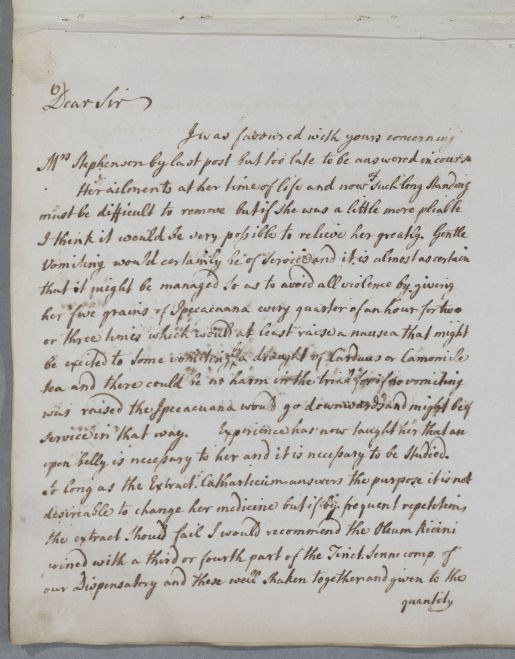 Dear Sir
I was favoured with yours concerning
Mrs Stephenson by last post but too late to be answered in course
Her ailments at her time of life and now of such long standing
must be difficult to remove but if she was a little more pliable
I think it would be very possible to relieve her greatly. Gentle
Vomiting would certainly be of Service and it is almost as certain
that it might be managed so as to avoid all violence by giving
her five grains of Ipecacuana every quarter of an hour for two
or three times which would at least raise a nausea that might
be excited to some vomiting by a draught of Carduus or Camomile
tea and there could be no harm in the trial for if no vomiting
was raised the Ipecacuana would go downwards and might be of
service in that way. Experience has now taught her that an
open belly is necessary to her and it is necessary to be studied.
So long as the Extract. Catharticum answers the purpose it is not
desireable to change her medicine but if by frequent repetitions
the extract should fail I would recommend the Oleum Ricini
joined with a third or fourth part of the Tinct. Sennæ comp. of
our Dispensatory and these well shaken together and given to the
quantity